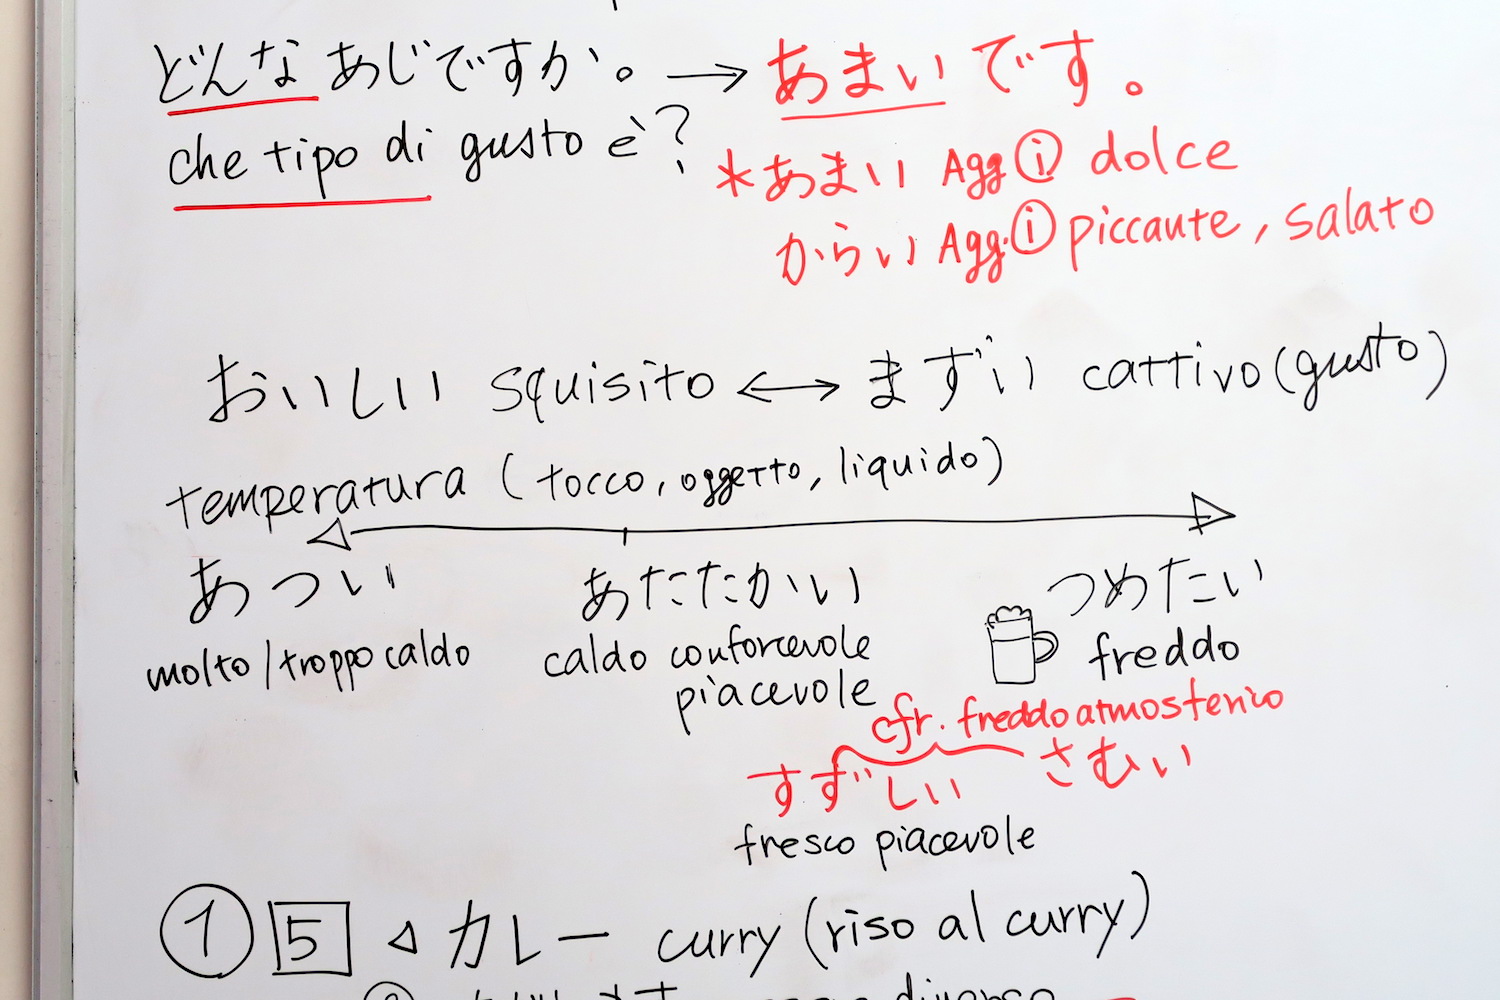 どんなあじですか。→あまいです。
che tipo di gusto è?
*あまい Agg ⓘ dolce
からい Agg. ⓘ piccante, salato
おいしい squisito ↔ まずい cattivo (gusto)
temperatura (tocco, oggetto, liquido)
あつい あたたかい つめたい
molto/troppo caldo caldo conforcevole freddo
piacevole
cfr. freddo atmosterico
すずしい さむい
fresco piacevole
① 5 ◁ カレー curry (riso al curry)